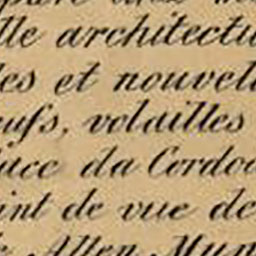 lle architectu
les et nouvell
eufs, volailles
lace da Cordoa
int de vue de
Allen, Mun